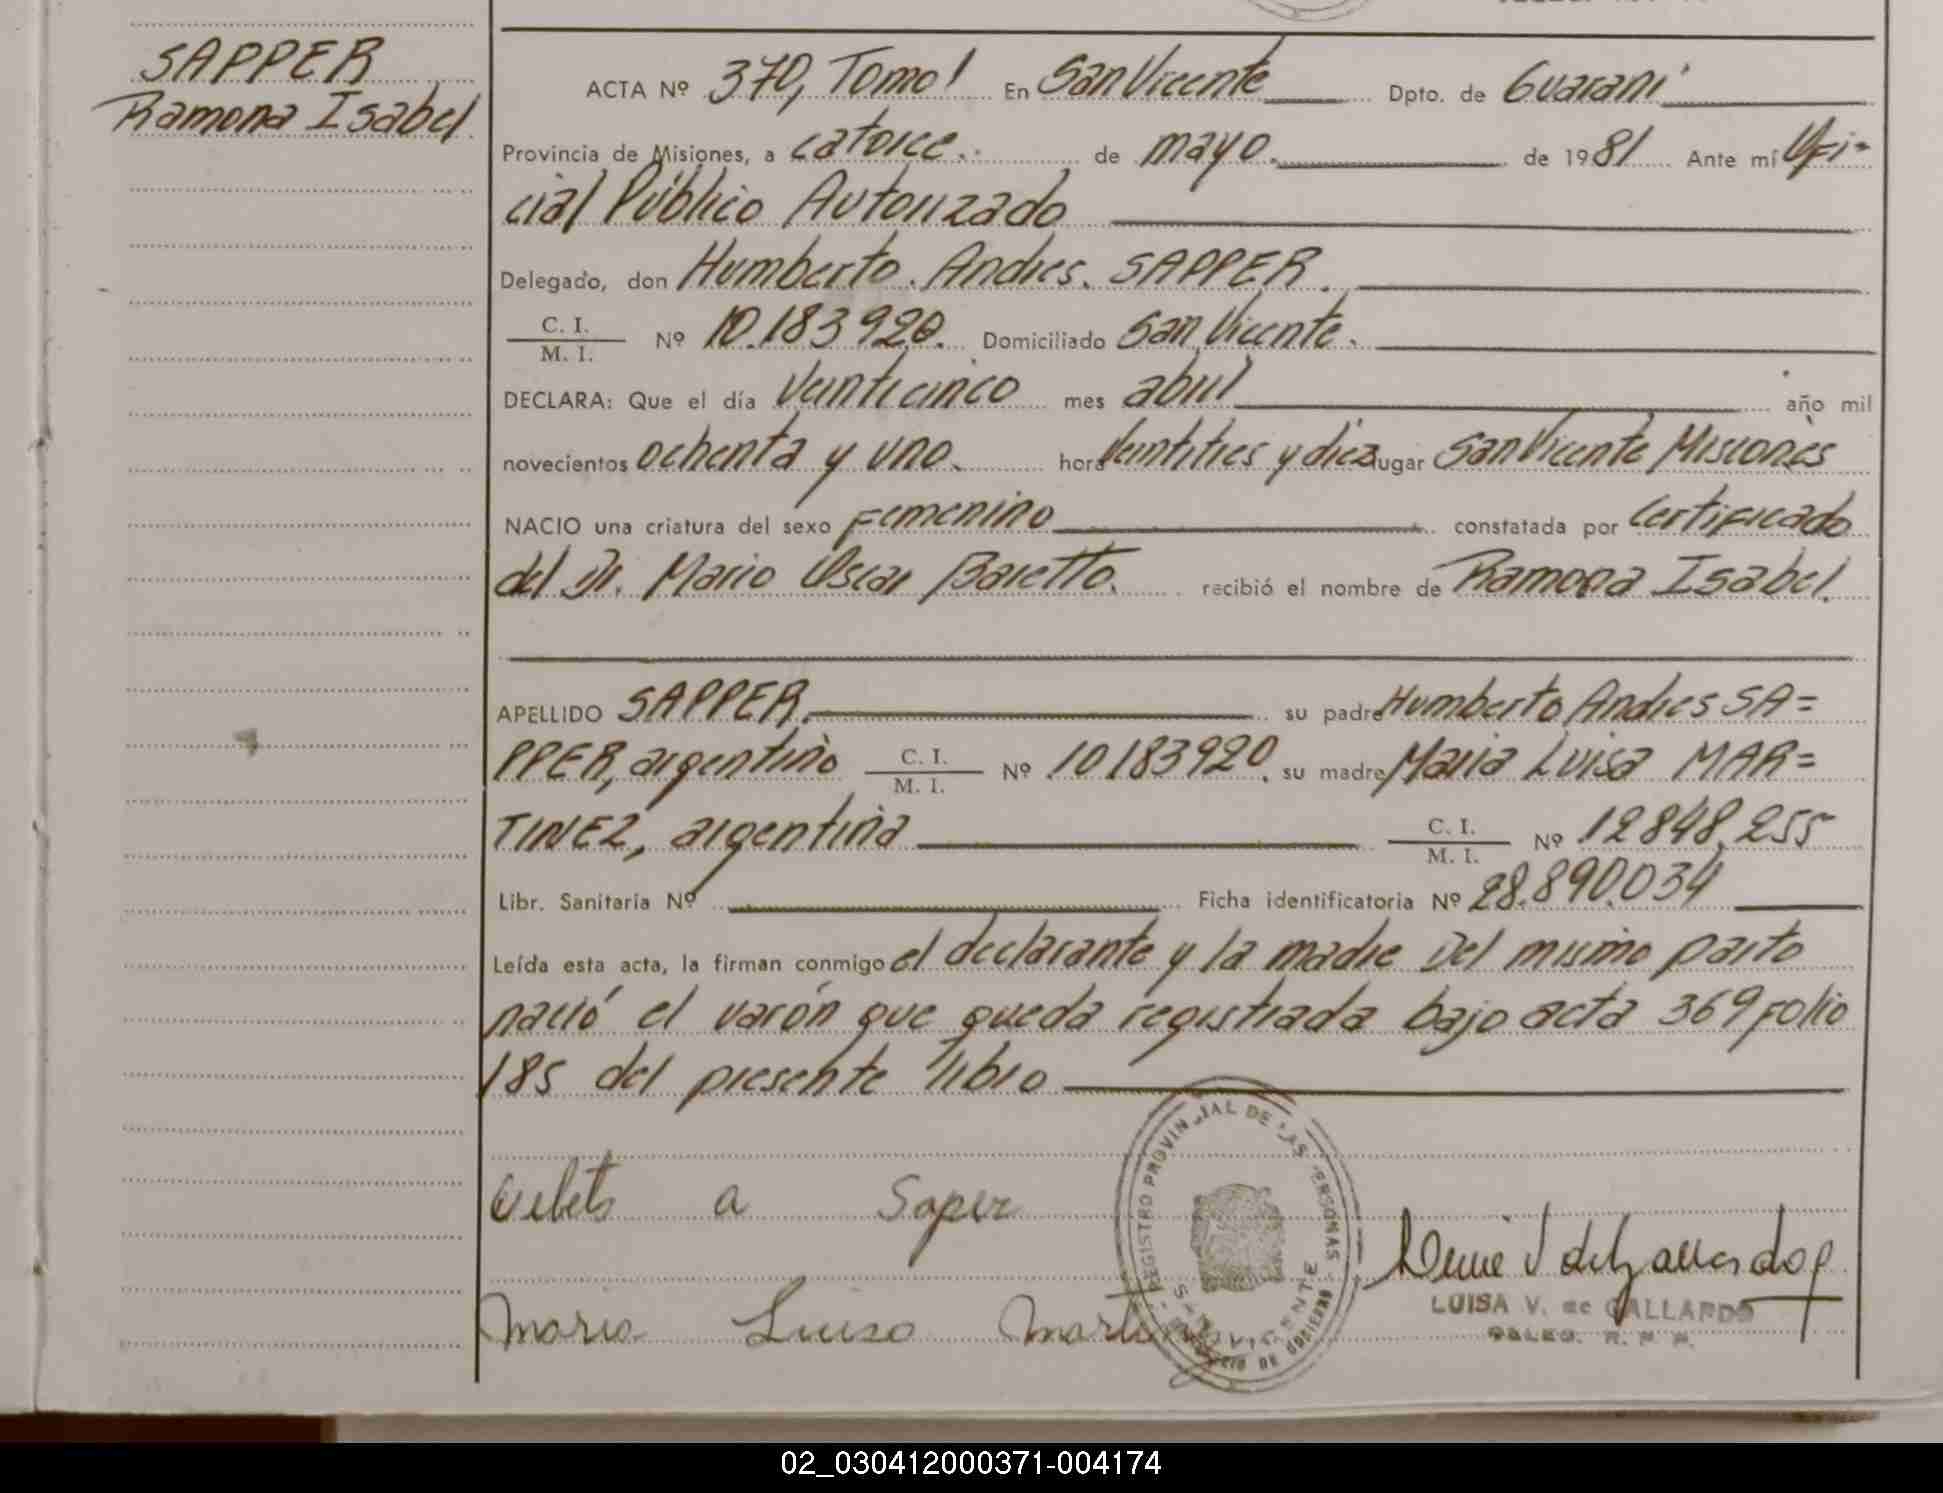 SAPPER
Ramona Isabel
ACTA Nº 370, Tomo I En San Vicente Dpto. de Guaraní
Provincia de Misiones, a catorce. de mayo. de 1981 Ante mí Ofi-
cial Público Autorizado
Delegado, don Humberto Andres. SAPPER.
C. I.
M. I. Nº 10.183920. Domiciliado San Vicente.
DECLARA: Que el día Veinticinco mes abril año mil
novecientos ochenta y uno. hora Veintitres y diez lugar San Vicente Misiones
NACIO una criatura del sexo Femenino constatada por certificado
del Dr. Mario Oscar Baretto. recibió el nombre de Ramona Isabel.
APELLIDO SAPPER su padre Humberto Andres SA=
PPER, argentino C. I. M. I. Nº 10183920. su madre Maria Luisa MAR=
TINEZ, argentina C. I. M. I. Nº 12848.255
Libr. Sanitaria Nº Ficha identificatoria Nº 28.890.034
Leída esta acta, la firman conmigo el declarante y la madre Del mismo parto
nació el varón que queda registrada bajo acta 369 folio
185 del presente libro
a Saper
Maria Luisa Martinez
REGISTRO PROVINCIAL DE LAS PERSONAS
SAN VICENTE
LUISA V. de GALLARDO
DELEG. R. P. P.
02_030412000371-004174